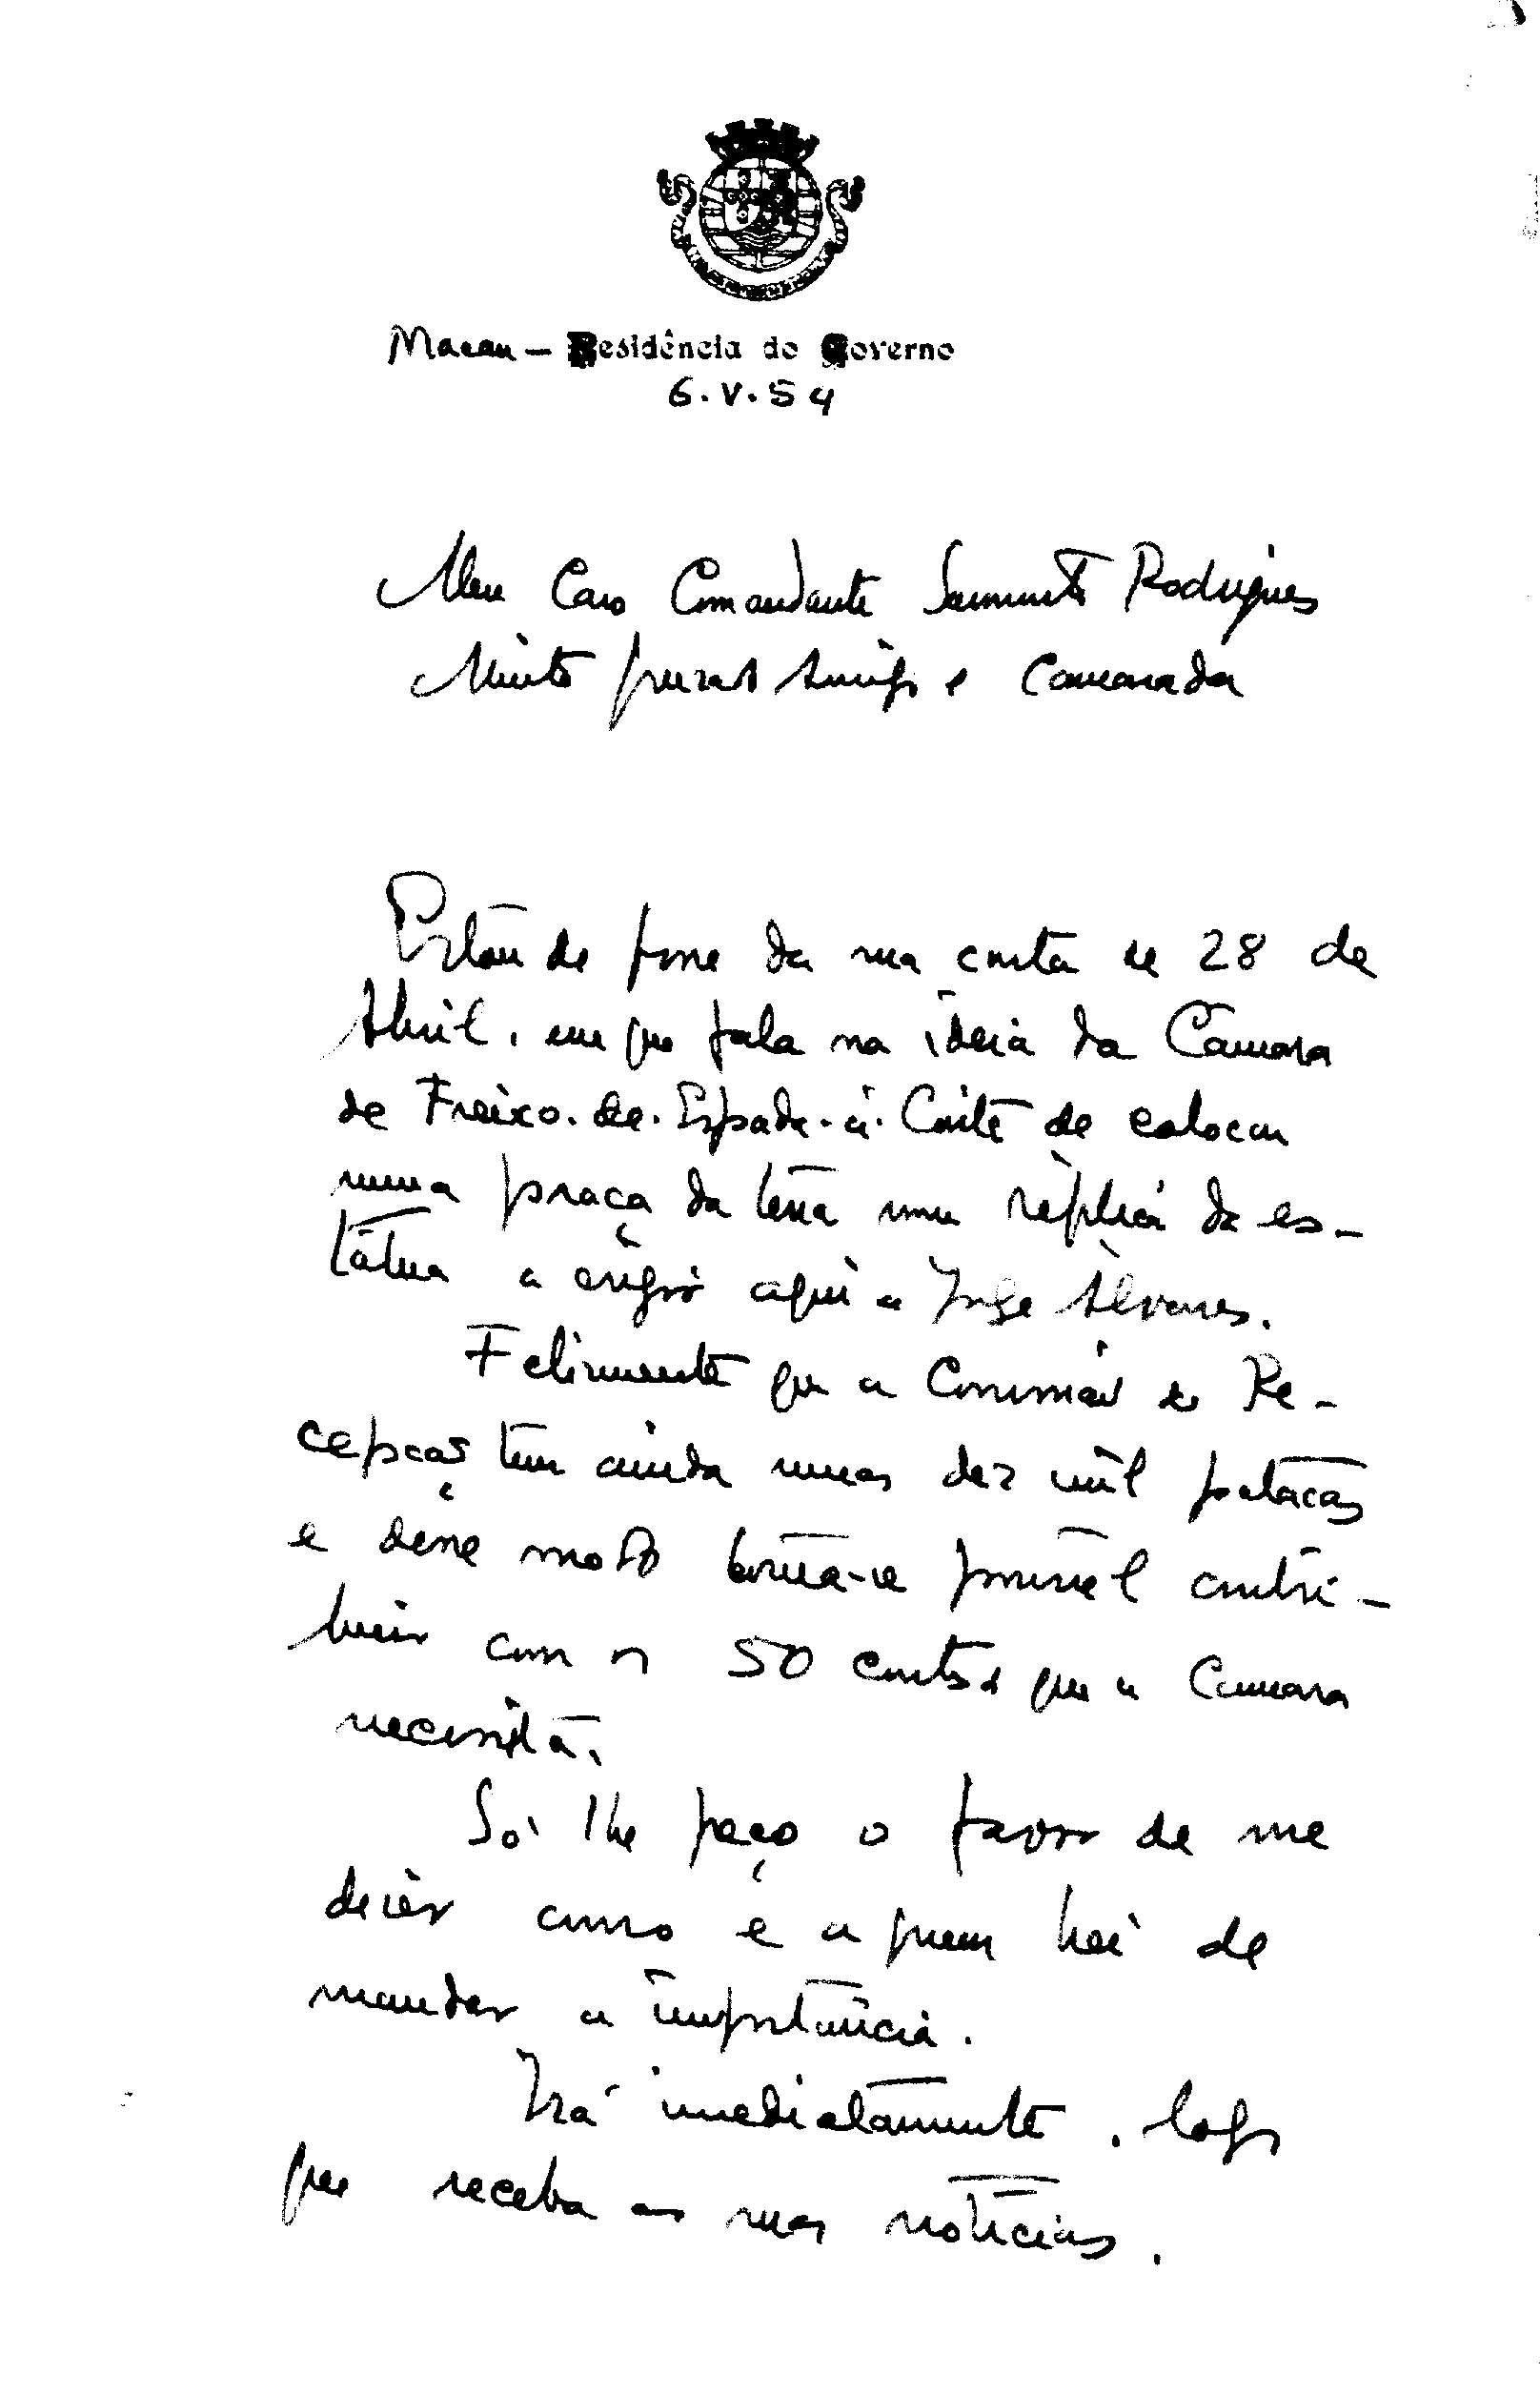 Macau - Residência do Governo
6.V.54
Meu Caro Comandante Sarmento Rodrigues
Muito prezado Amigo e Camarada
Estou de posse da sua carta de 28 de
Abril, em que fala na ideia da Câmara
de Freixo-de-Espada-à-Cinta de colocar
numa praça da terra uma réplica da es-
tátua a erigir aqui a Jorge Álvares.
Felizmente que a Comissão de Re-
cepção tem ainda umas dez mil patacas
e desse modo torna-se possível contri-
buir com os 50 contos que a Camara
necessita.
Só lhe peço o favor de me
dizer como e a quem hei de
mandar a importância.
Irá imediatamente, logo
que receba as suas notícias.